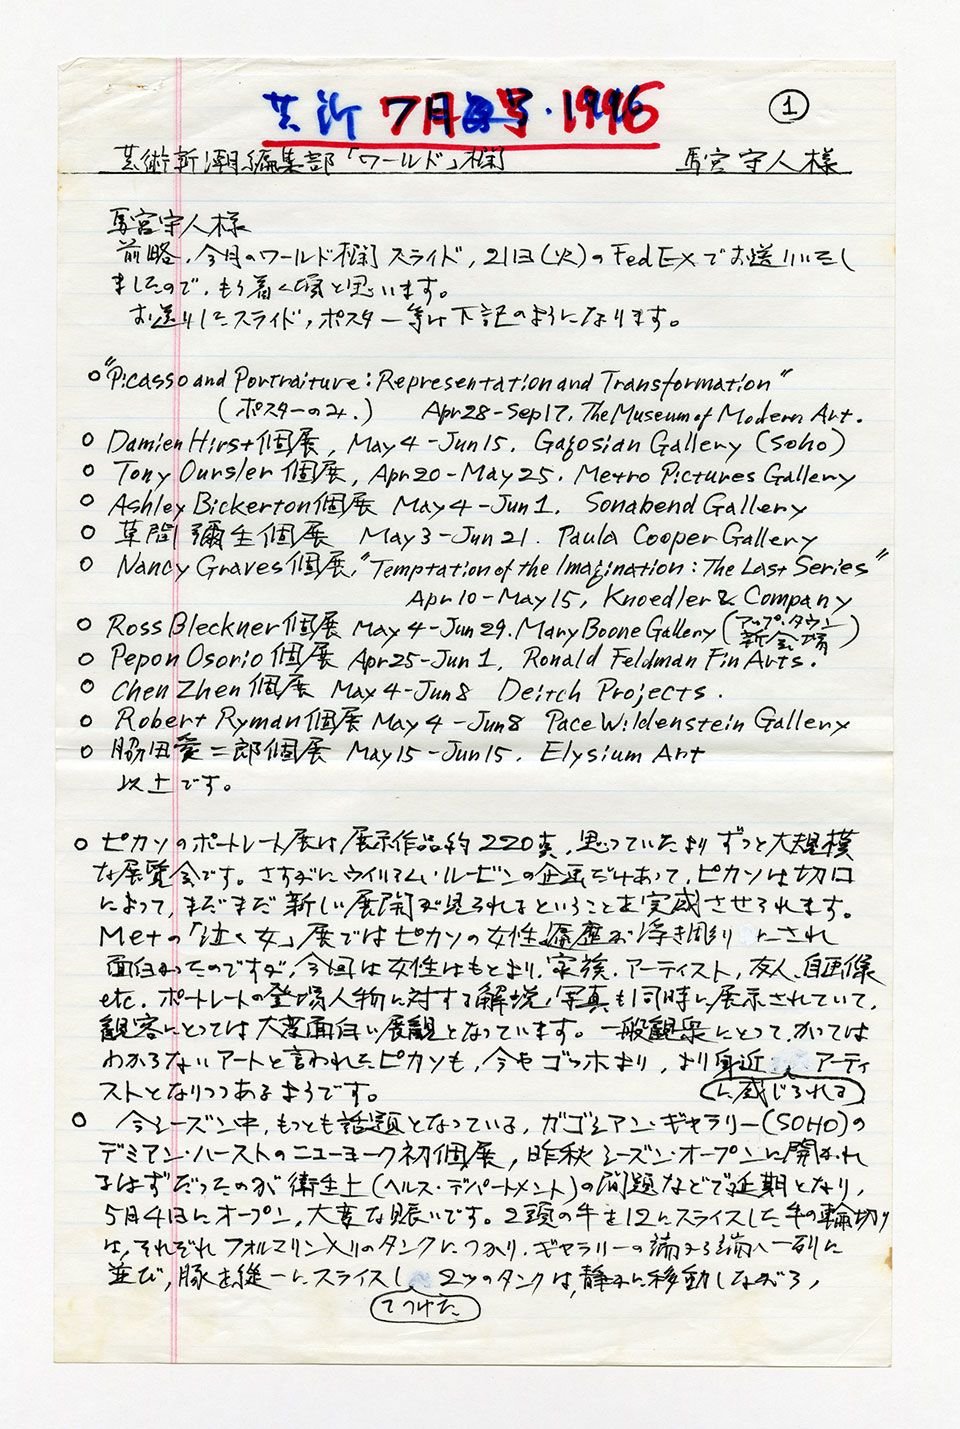 芸新 7月号・1996
①
芸術新潮編集部「ワールド」欄 馬宮守人様
馬宮守人様
前略、今月のワールド欄スライド、21日(火)のFedExでお送りいたし
ましたので、もう着く頃と思います。
お送りしたスライド、ポスター等は下記のようになります。
○"Picasso and Portraiture: Representation and Transformation"
(ポスターのみ.) Apr 28-Sep 17, The Museum of Modern Art.
○ Damien Hirst個展, May 4-Jun 15, Gagosian Gallery (Soho)
○ Tony Oursler個展, Apr 20-May 25. Metro Pictures Gallery
○ Ashley Bickerton個展 May 4-Jun 1, Sonabend Gallery
○ 草間彌生個展 May 3-Jun 21. Paula Cooper Gallery
○ Nancy Graves個展,"Temptation of the Imagination: The Last Series"
Apr 10-May 15, Knoedler & Company
○ Ross Bleckner個展 May 4-Jun 29. Mary Boone Gallery (アップ・タウン新会場)
○ Pepon Osorio個展 Apr 25-Jun 1, Ronald Feldman Fin Arts.
○ Chen Zhen個展 May 4-Jun 8 Deitch Projects.
○ Robert Ryman個展 May 4-Jun 8 Pace Wildenstein Gallery
○ 脇田愛二郎個展 May 15-Jun 15. Elysium Art
以上です。
○ ピカソのポートレート展は展示作品約220点、思っていたよりずっと大規模
な展覧会です。さすがにウイリアム・ルービンの企画だけあって、ピカソは切口
によって、まだまだ新しい展開が見られるということを完成させられます。
Metの「泣く女」展ではピカソの女性遍歴が浮き彫りにされ
面白かったのですが、今回は女性はもとより、家族、アーティスト、友人、自画像
etc. ポートレートの登場人物に対する解説、写真も同時に展示されていて、
観客にとっては大変面白い展観となっています。一般観衆にとって、かつては
わからないアートと言われたピカソも、今やゴッホより、より身近に感じられるアーティ
ストとなりつつあるようです。
○ 今シーズン中、もっとも話題となっている、ガゴシアン・ギャラリー(SOHO)の
デミアン・ハーストのニューヨーク初個展、昨秋シーズン・オープンに開かれ
るはずだったのが衛生上(ヘルス・デパートメント)の問題などで延期となり、
5月4日にオープン、大変な賑いです。2頭の牛を12にスライスした牛の輪切り
は、それぞれフォルマリン入りのタンクにつかり、ギャラリーの端から端へ一列に
並び、豚を縦一にスライスしてつけた2つのタンクは、静かに移動しながら、